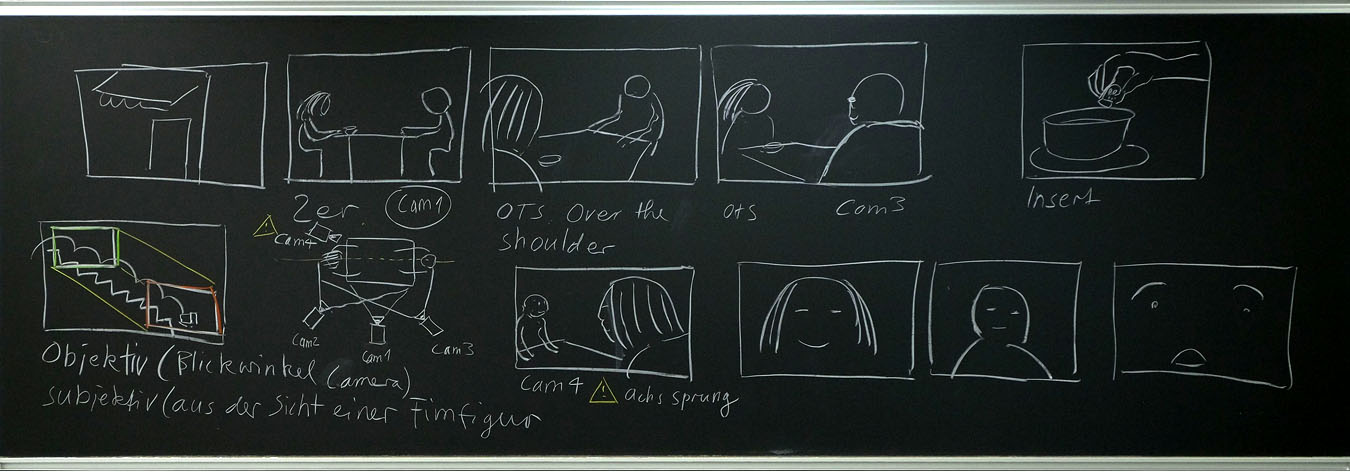 2er. Cam1
OTS. Over the
shoulder
OTS Cam3
Insert
Cam4
Cam2
Cam1
Cam3
Objektiv (Blickwinkel Camera)
subjektiv (aus der Sicht einer Fimfigur
Cam4 ! achs sprung